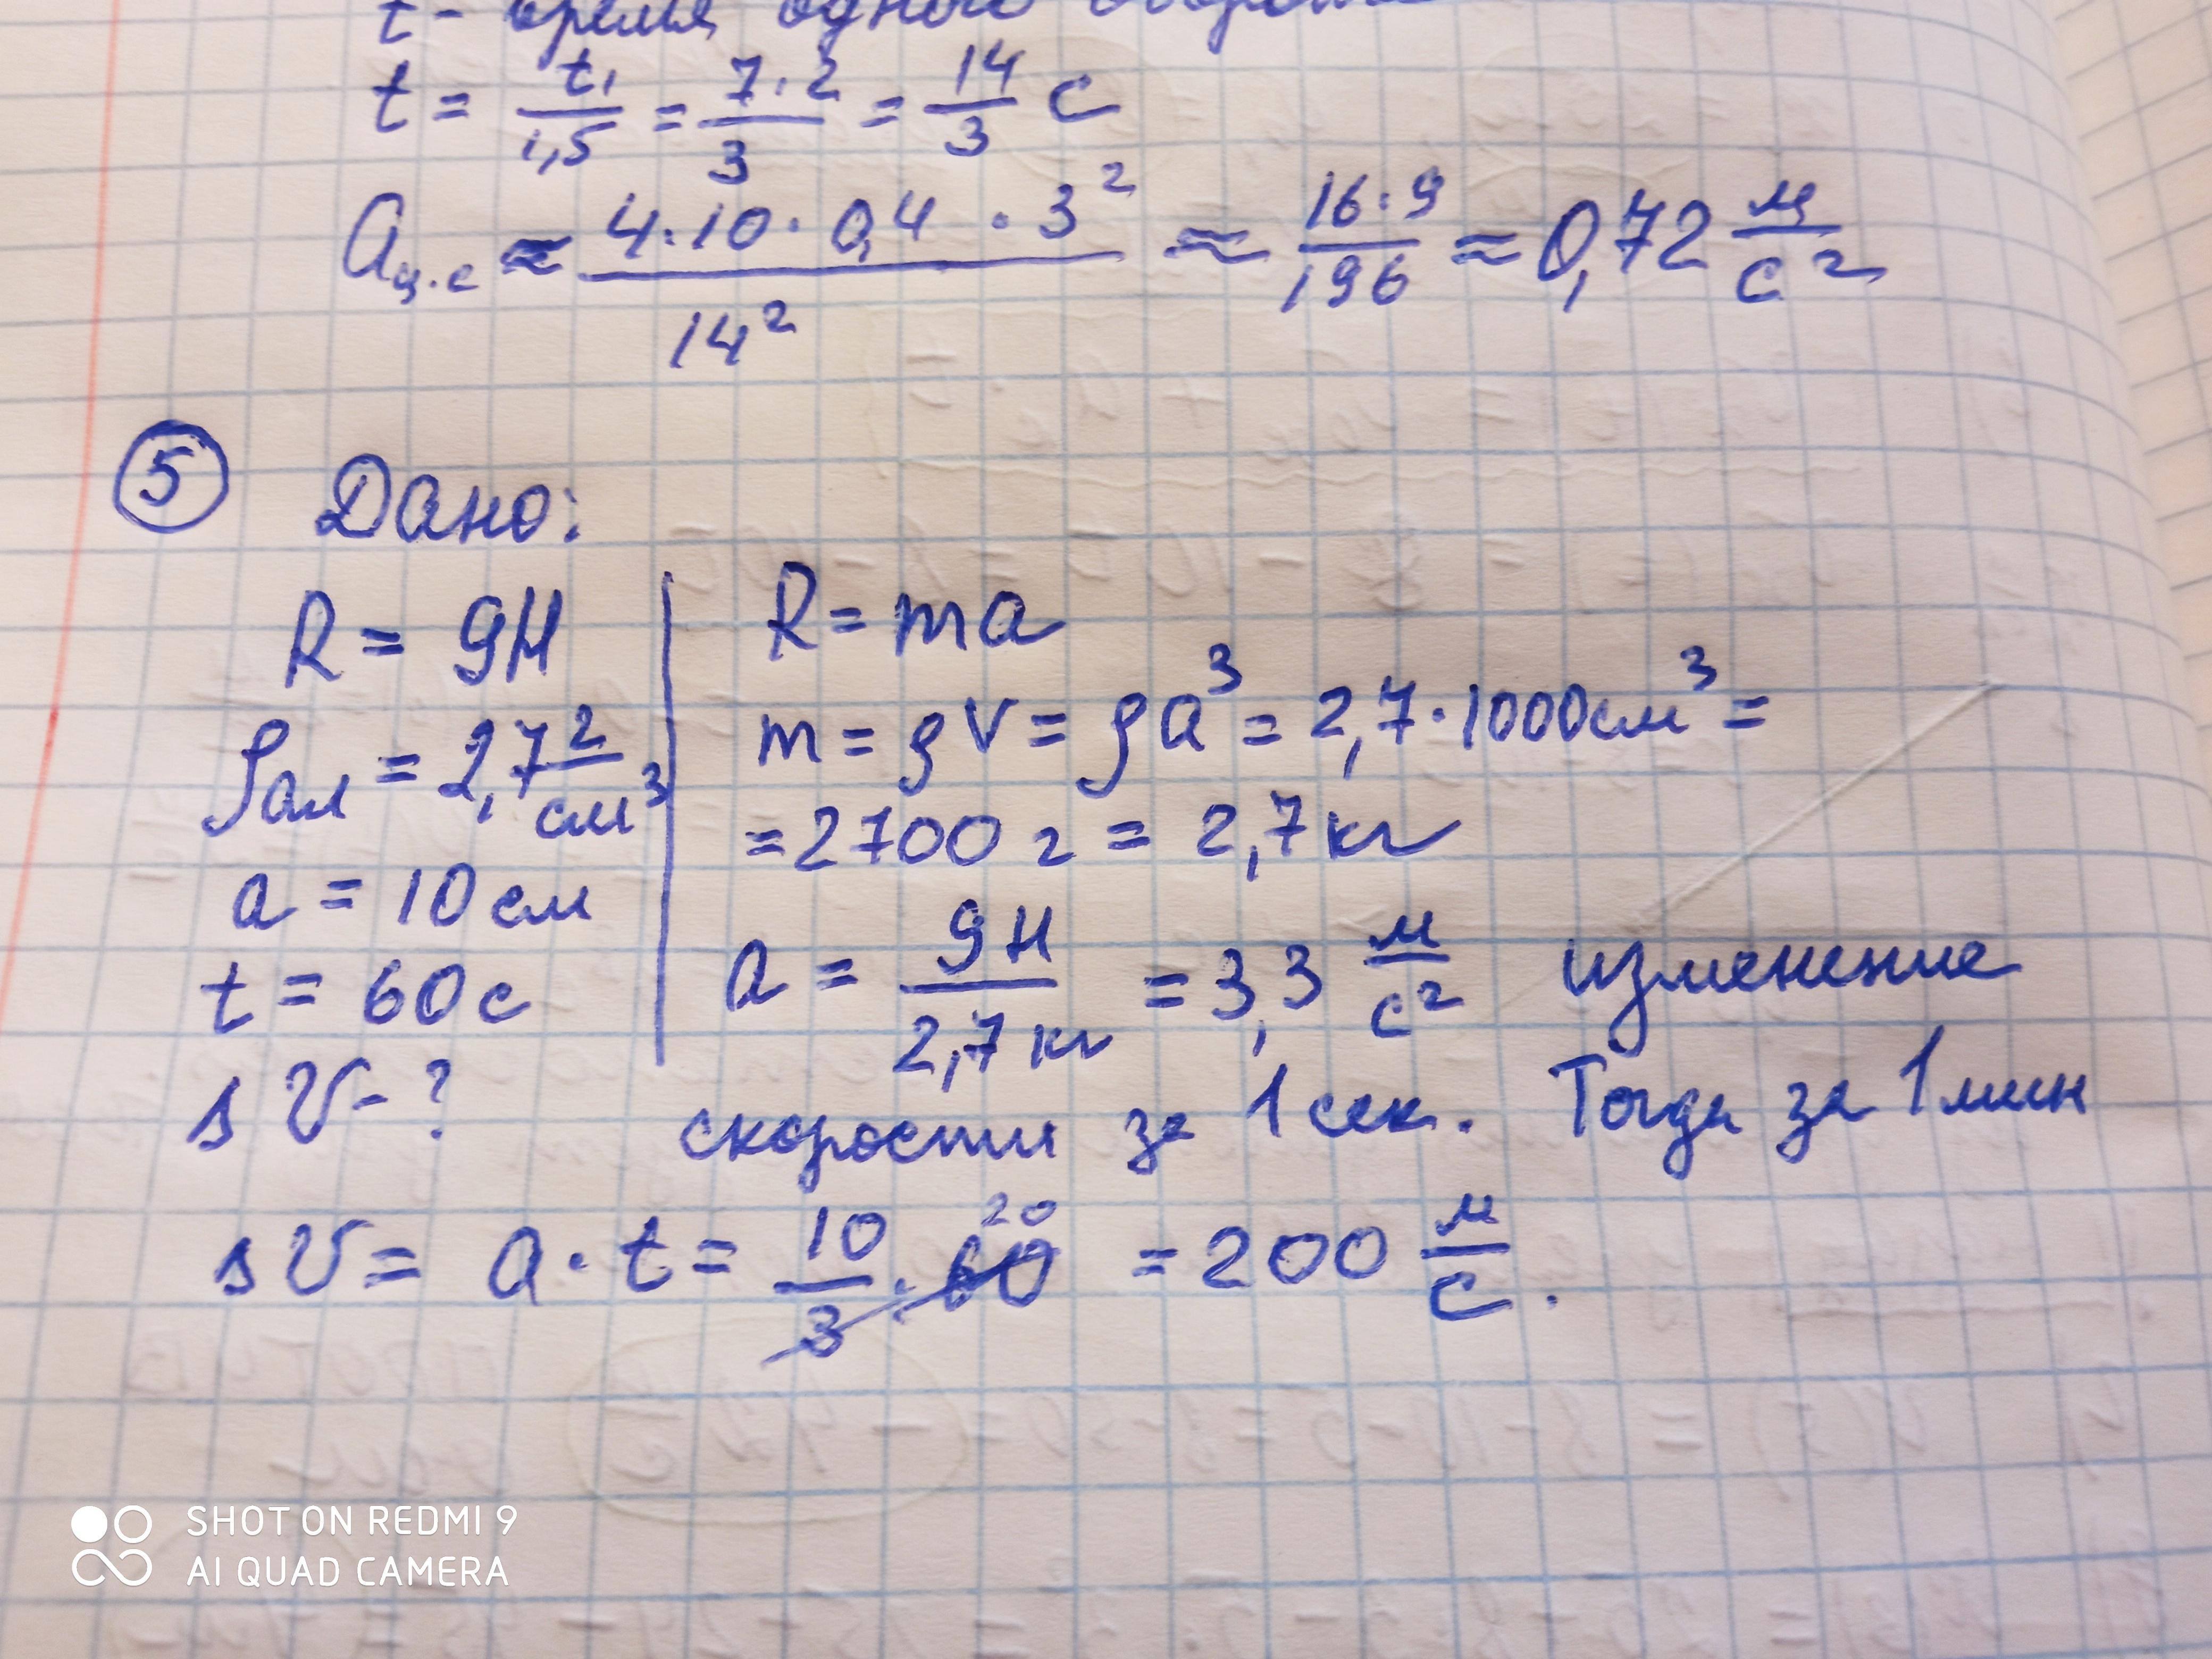 t - время одного
t = t₁/1,5 = 7·2/3 = 14/3 с
aц.с ≈ 4·10·0,4·3²/14² ≈ 16·9/196 ≈ 0,72 м/с²
⑤ Дано:
R = 9Н
ρал = 2,7 г/см³
a = 10 см
t = 60 с
ΔV - ?
R = ma
m = ρV = ρa³ = 2,7·1000см³ =
= 2700 г = 2,7 кг
a = 9Н/2,7 кг = 3,3 м/с² изменение
скорости за 1 сек. Тогда за 1 мин
ΔV = a·t = 10/3·60 20 = 200 м/с.
SHOT ON REDMI 9
AI QUAD CAMERA